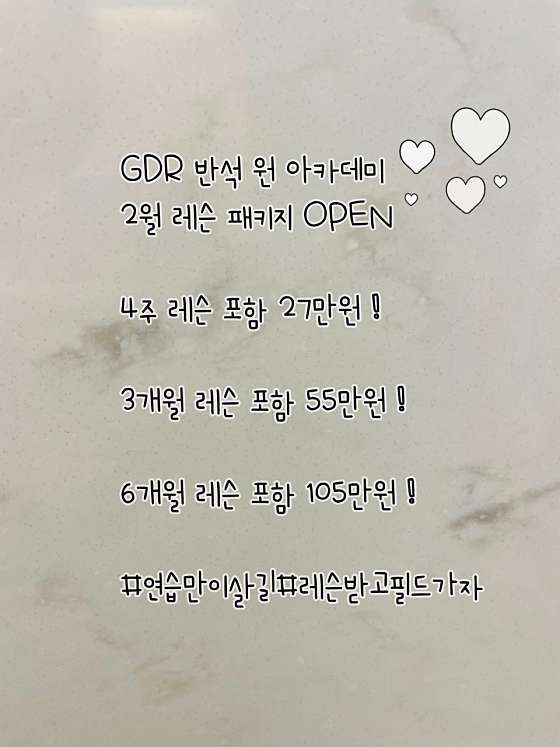 GDR 반석 원 아카데미
2월 레슨 패키지 OPEN
4주 레슨 포함 27만원 !
3개월 레슨 포함 55만원 !
6개월 레슨 포함 105만원 !
#연습만이살길#레슨받고필드가자